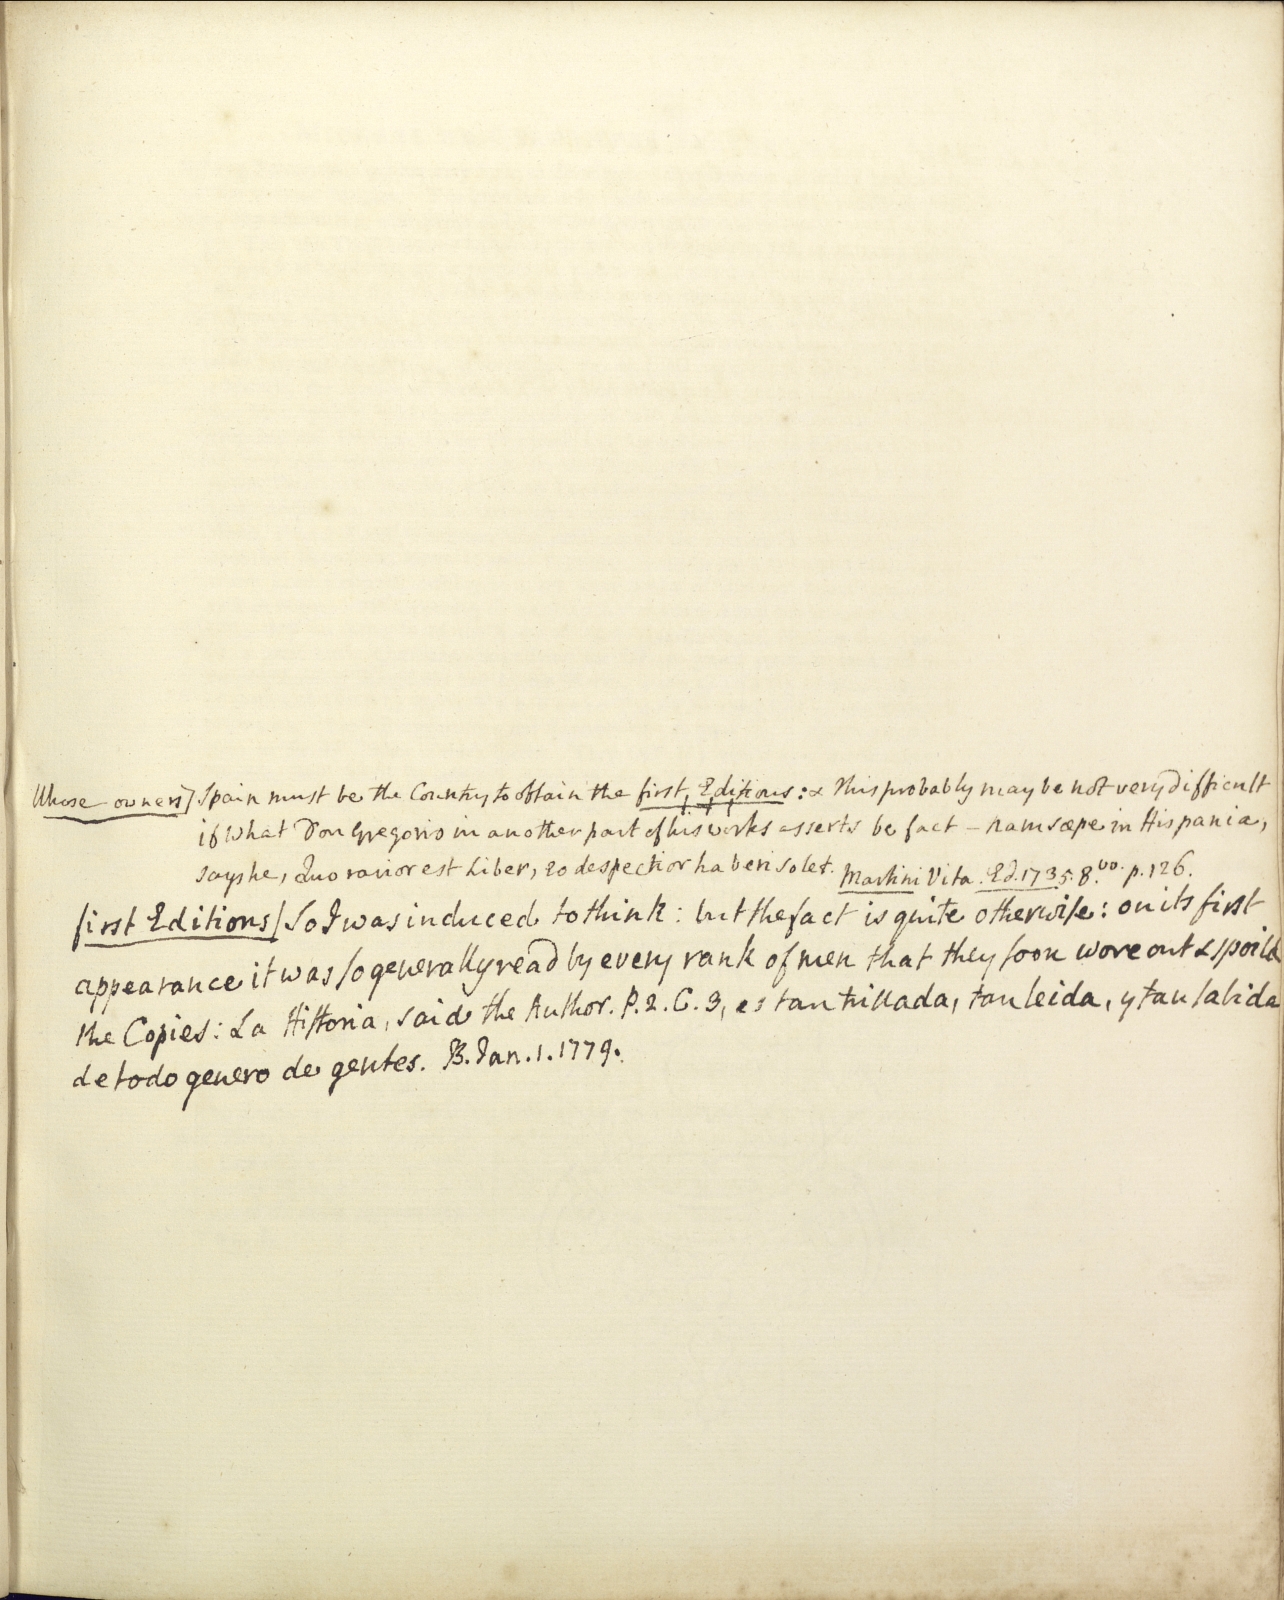 Whose owners] Spain must be the Country to obtain the first, Editions: & this probably may be not very difficult
if what Don Gregorio in another part of his works asserts be fact – nam sæpe in Hispania,
says he, Quo rarior est Liber, eo despectior haberi solet. Martini Vita. Ed. 1735. 8.vo. p. 126.
first Editions] So I was induced to think: but the fact is quite otherwise: on its first
appearance it was so generally read by every rank of men that they soon wore out & spoild
the Copies: La Historia, said the Author. P. 2. C. 3, es tan trillada, tan leida, y tan sabida
de todo genero de gentes. B. Jan. 1. 1779.